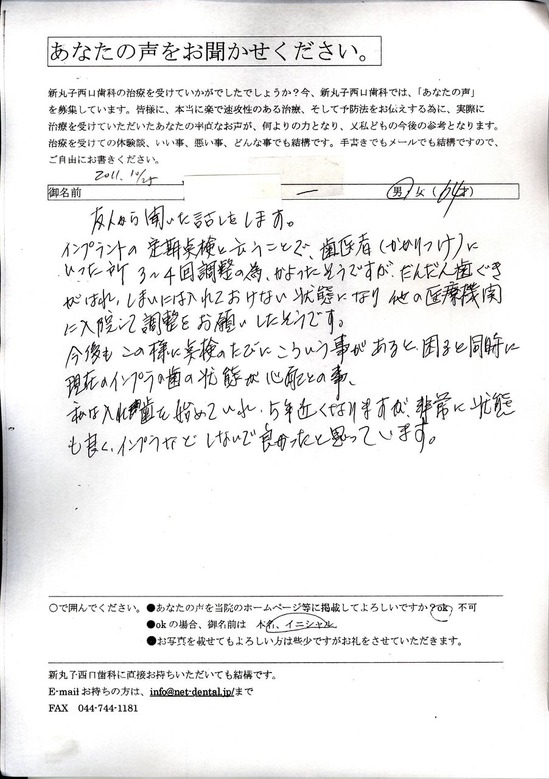 あなたの声をお聞かせください。
新丸子西口歯科の治療を受けていかがでしたでしょうか?今、新丸子西口歯科では、「あなたの声」
を募集しています。皆様に、本当に楽で速攻性のある治療、そして予防法をお伝えする為に、実際に
治療を受けていただいたあなたの率直なお声が、何よりの力となり、又私どもの今後の参考となります。
治療を受けての体験談、いい事、悪い事、どんな事でも結構です。手書きでもメールでも結構ですので、
ご自由にお書きください。
2011.10/25
御名前 男・女(64才)
友人から聞いた話しをします。
インプラントの定期点検と云うことで、歯医者(かかりつけ)に
いった所 3〜4回調整の為、かよったそうですが、だんだん歯ぐき
がはれ、しまいには入れておけない状態になり 他の医療機関
に入院して調整をお願いしたそうです。
今後も この様に点検のたびにこういう事があると、困ると同時に
現在のインプラの歯の状態が心配との事、
私は入れ歯を始めていれ、5年近くなりますが、非常に状態
も良く、インプラなどしないで良かったと思っています。
○で囲んでください。●あなたの声を当院のホームページ等に掲載してよろしいですか?ok 不可
●okの場合、御名前は 本名、イニシャル
●お写真を載せてもよろしい方は些少ですがお礼をさせていただきます。
新丸子西口歯科に直接お持ちいただいても結構です。
E-mailお持ちの方は、info@net-dental.jp/まで
FAX 044-744-1181